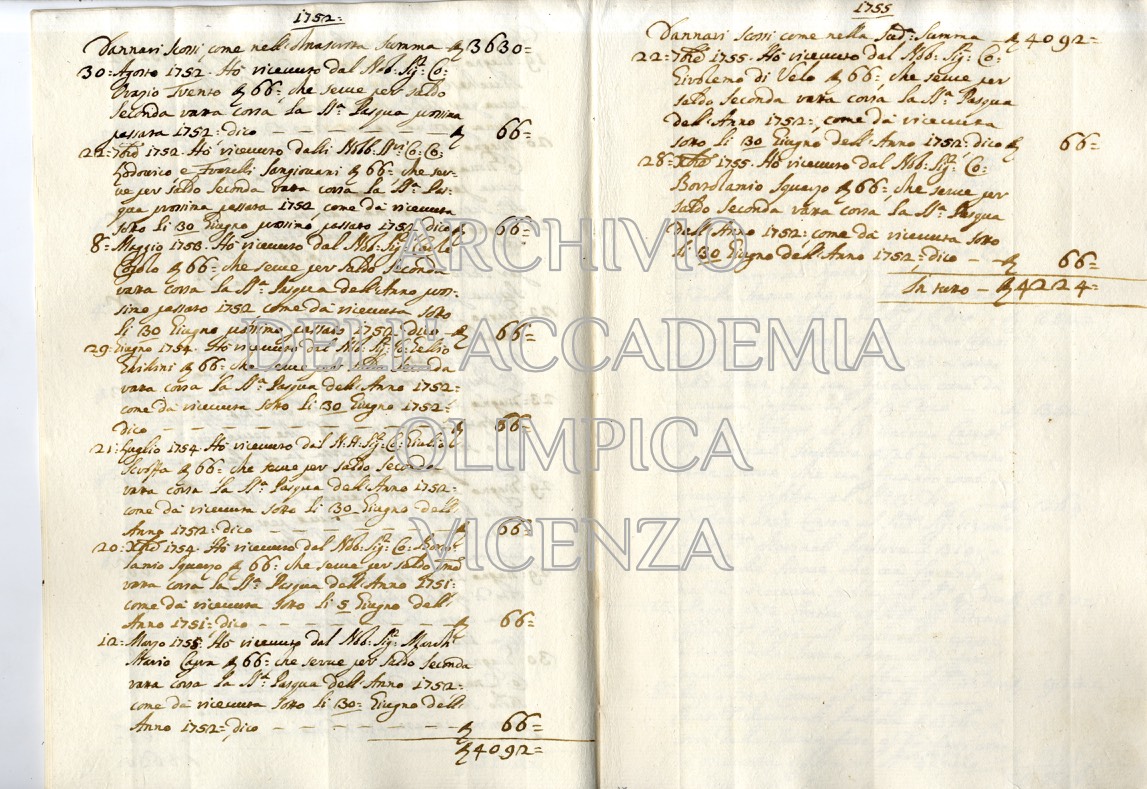 1752:
Dannari scossi come nell' Summa — 3630=
30= Agosto 1752. Hò ricevuto dal Nob: Sig:r Co:
Orazio Trento 66=, che serve per saldo
seconda ratta corsa la S.ta Pasqua prossima
passata 1752= dico — 66=
22= 7bre 1752. Hò ricevuto dalli Nobb: Co: Co:
Lodovico e Fratelli Sangiovani 66= che ser-
ve per saldo seconda ratta corsa la S.ta Pas-
qua prossima passata 1752, come da ricevuta
sotto li 30 Giugno prossimo passato 1752 dico 66=
8= Maggio 1753. Hò ricevuto dal Nob: Sig:r
66= che serve per saldo seconda
ratta corsa la S.ta Pasqua dell' Anno pros-
simo passato 1752 come da ricevuta sotto
li 30 Giugno prossimo passato 1752 dico — 66=
29= Giugno 1754. Hò ricevuto dal Nob: Sig:r Co: Lellio
66= che serve per saldo seconda
ratta corsa la S.ta Pasqua dell' Anno 1752=
come da ricevuta sotto li 30 Giugno 1752=
dico — 66=
21= Luglio 1754. Hò ricevuto dal N: H: Sig:r Co: Giulio
Scroffa 66= che serve per saldo seconda
ratta corsa la S.ta Pasqua dell' Anno 1752=
come da ricevuta sotto li 30 Giugno dell'
Anno 1752= dico — 66=
20= Xbre 1754. Hò ricevuto dal Nob: Sig:r Co: Borto-
lamio Squarzo 66= che serve per saldo 2nda
ratta corsa la S.ta Pasqua dell' Anno 1751=
come da ricevuta sotto li 5 Giugno dell'
Anno 1751= dico — 66=
12= Marzo 1755= Hò ricevuto dal Nob: Sig:r March:
Mario Capra 66= che serve per saldo seconda
ratta corsa la S.ta Pasqua dell' Anno 1752=
come da ricevuta sotto li 30= Giugno dell'
Anno 1752= dico — 66=
4092=
1755
Dannari scossi come nella Summa — 4092=
22= 7bre 1755. Hò ricevuto dal Nob: Sig:r Co:
Girolemo di Velo 66=, che serve per
saldo seconda ratta corsa la S.ta Pasqua
dell' Anno 1752=, come da ricevuta
sotto li 30 Giugno dell' Anno 1752= dico 66=
28= Xbre 1755. Hò ricevuto dal Nob: Sig:r Co:
Bortolamio Squarzo 66=, che serve per
saldo seconda ratta corsa la S.ta Pasqua
dell' Anno 1752=, come da ricevuta sotto
li 30 Giugno dell' Anno 1752= dico — 66=
In tutto — 4224=
ARCHIVIO
DELL'ACCADEMIA
OLIMPICA
VICENZA